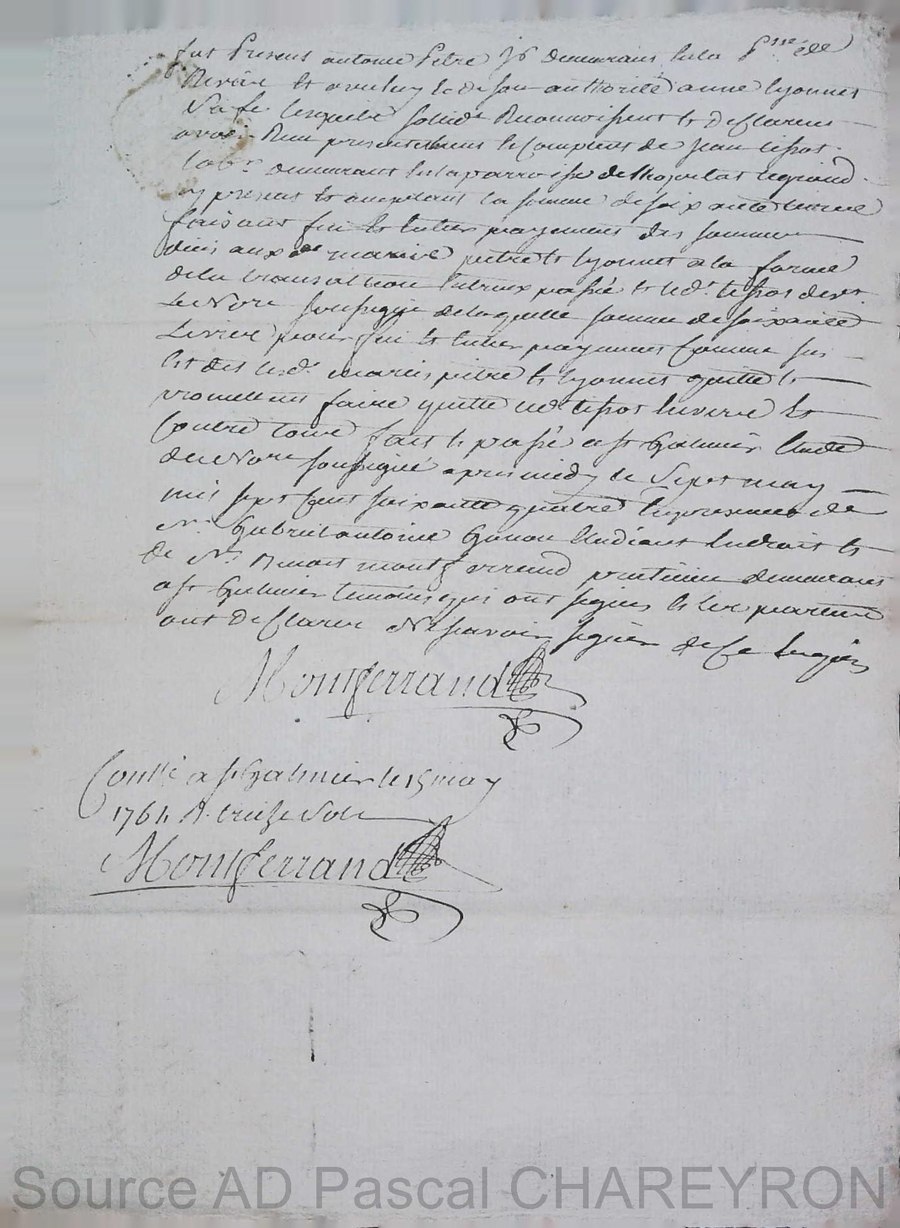 fut Present antoine Pitre demeurant en la
Riviere et avec luy et de son authorité anne Lyonnet
Sa fe. lesquels solidt. Reconnoissent et Declarent
avoir Reçu presentement et Comptant de jean tissot
labr. demeurant en la parroisse de legrand
cy present et acceptant la somme de soixante
faisant fin et entier payement des sommes
dües aux de. mariés pitre et Lyonnet a la forme
de la transaction entreux passée et led. tissot devt.
Le Nore soussigné de laquelle somme de soixante
Livres pour fin et entier payement Comme sus
est dit lesd. mariés pitre et Lyonnet quitte et
promettent faire quitte led tissot envers et
Contre tous fait et passé a st Galmier Etude
du Nore soussigné apres midy le Sept may
mil sept Cent soixante quatre En presence de
Mr. Gabriel antoine Etudiant En droit et
de Mr. Benoit montferrand praticien demeurants
a st Galmier temoins qui ont signés et les parties
ont Declarés Ne savoir signer de Ce Enquis
Montferrand
Conllé a st Galmier le 15 may
1764 R. treize Sols
Montferrand
Source AD Pascal CHAREYRON